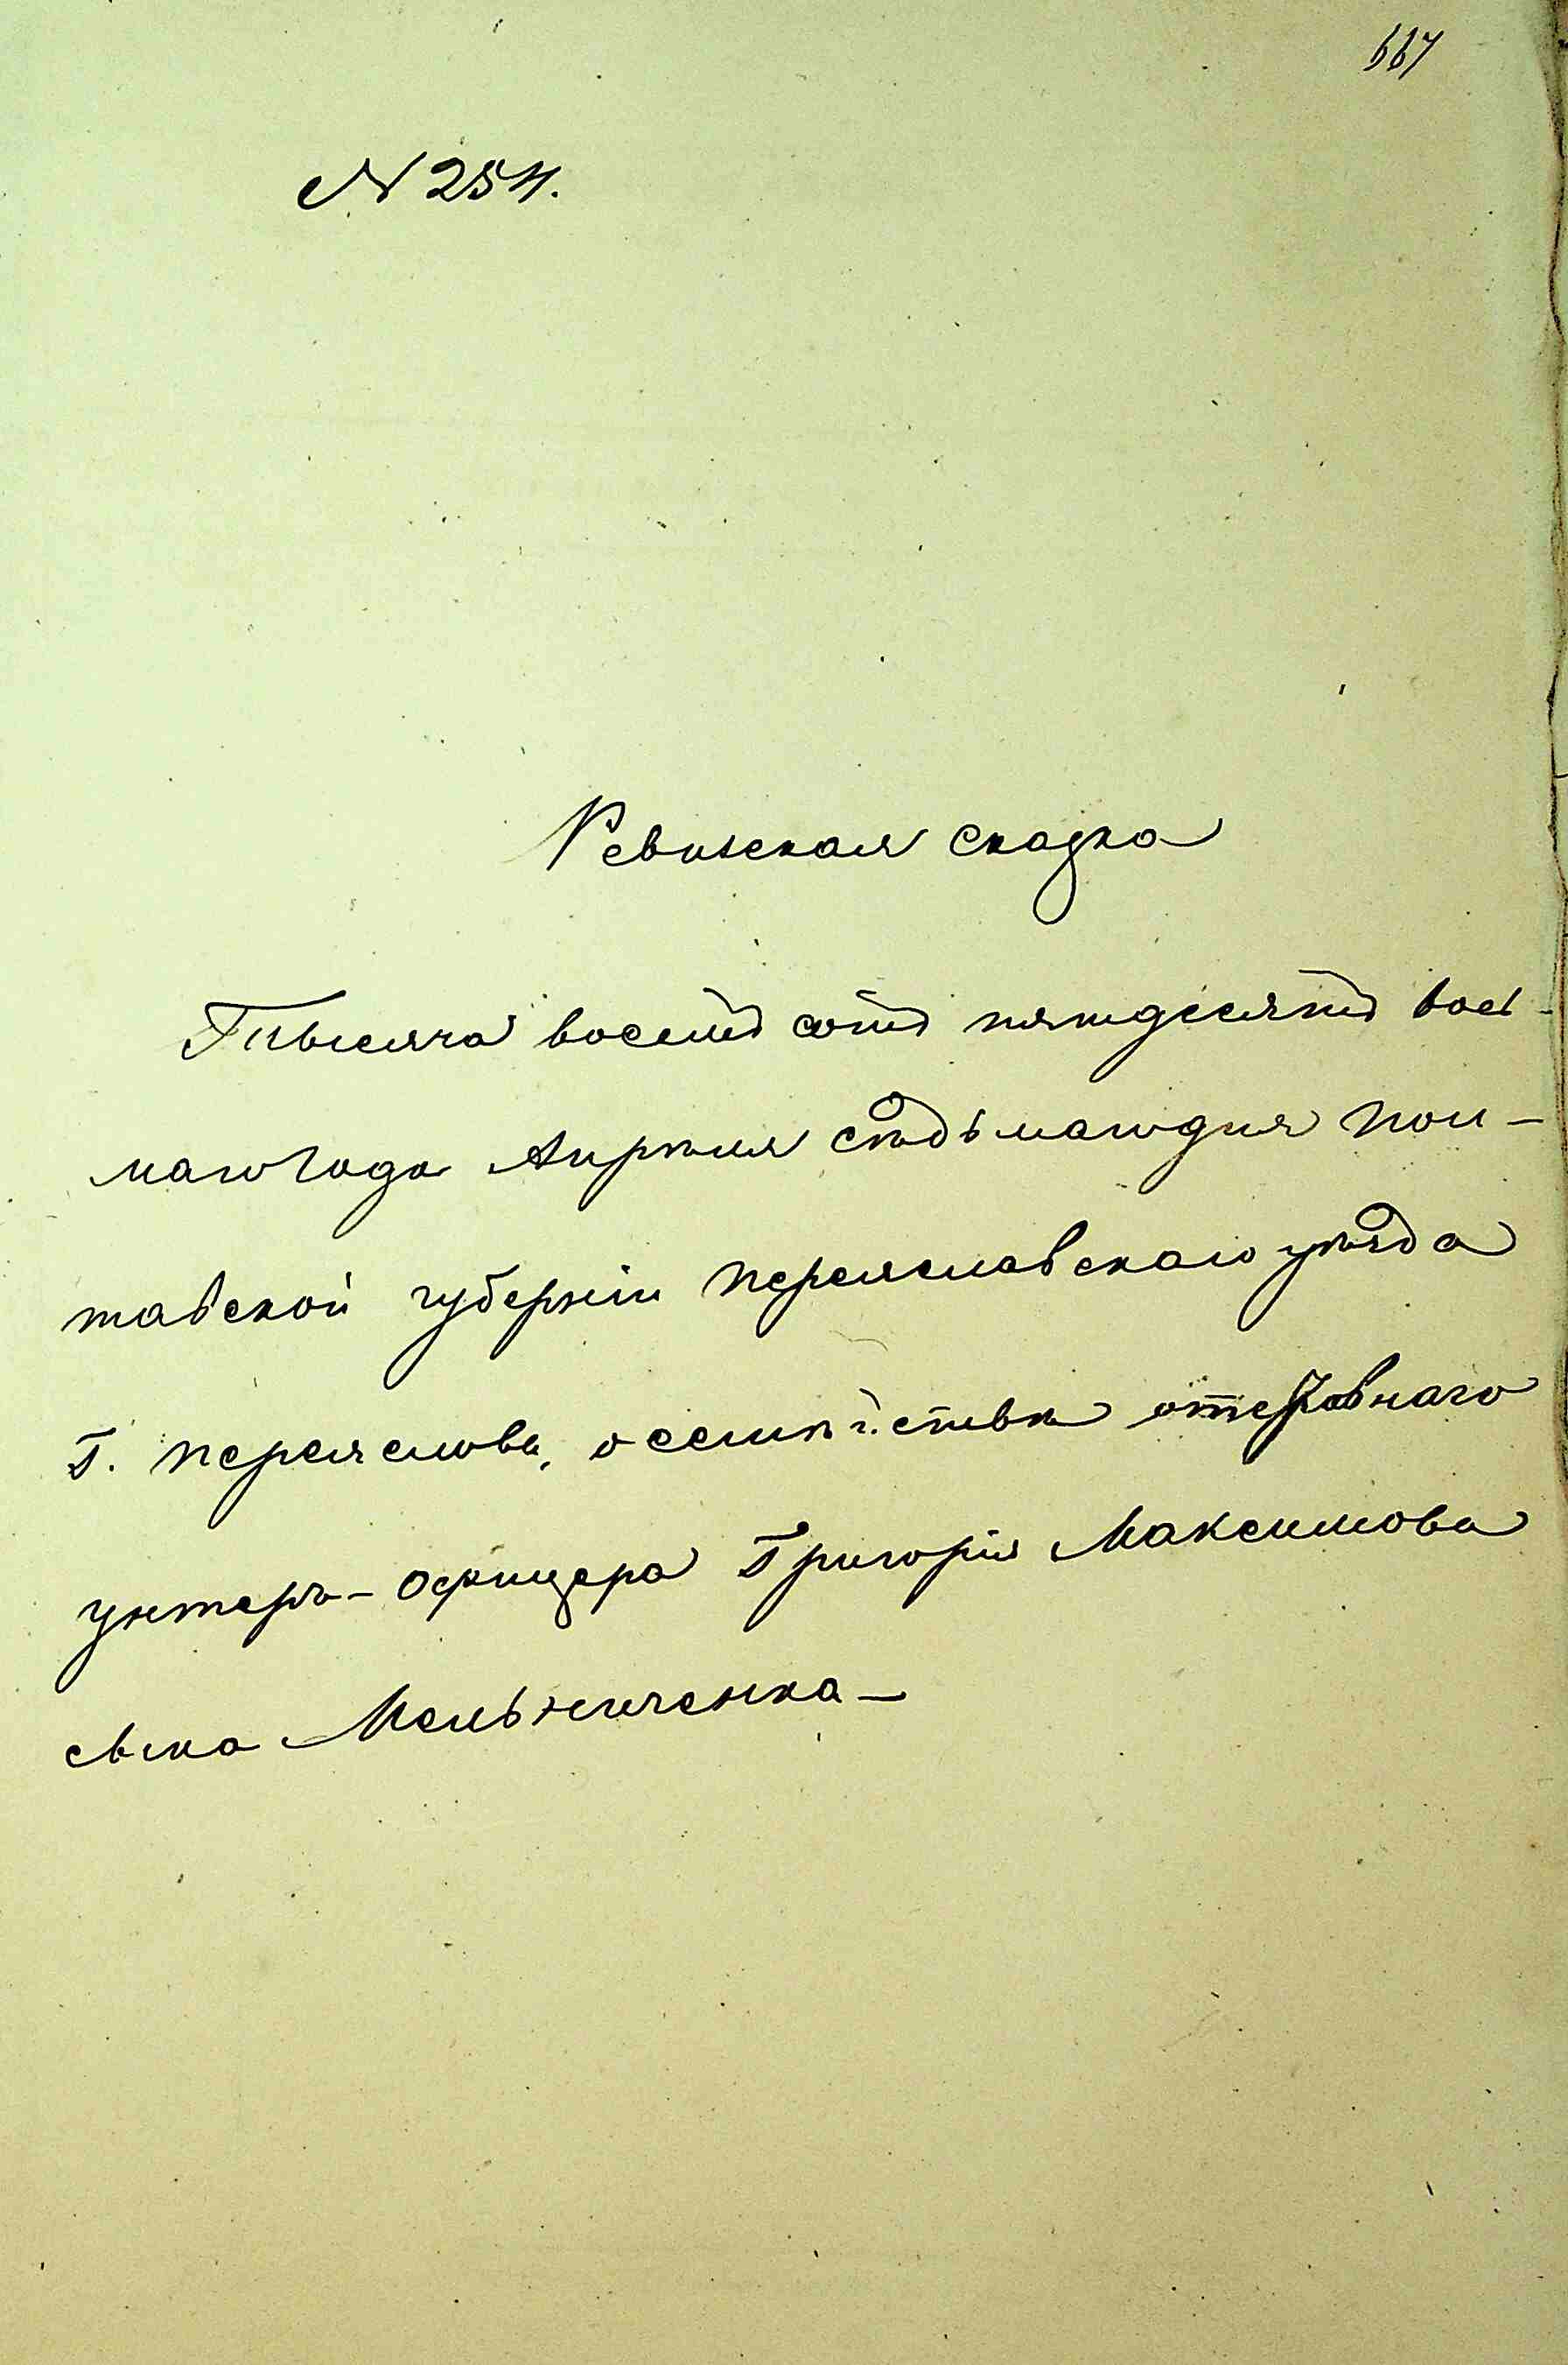 667
№ 254.
Ревизская сказка
Тысяча восемь сотъ пятдесятъ вось-
маго года Апрѣля сѣдьмаго дня Пол-
тавской губерніи Переяславскаго уѣзда
Г. Переяслова, о семѣйствѣ отставнаго
унтеръ-офицера Григорія Максимова
сына Мельниченка-